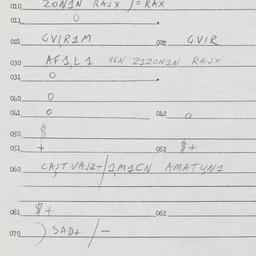 010 ZON1N RAJX ) = RAX
011 0 .
021 GV,R1M 022 GVIR
030 AF1,L1 VEN Z1ZON1N RAJX
031 0 .
040 0
041 0 042 0
050 $
051 + 052 $+
060 CA,T VAJZ-/1,M1CN AMATY,N1
061 $+ 062
070 ) SAD+ / -